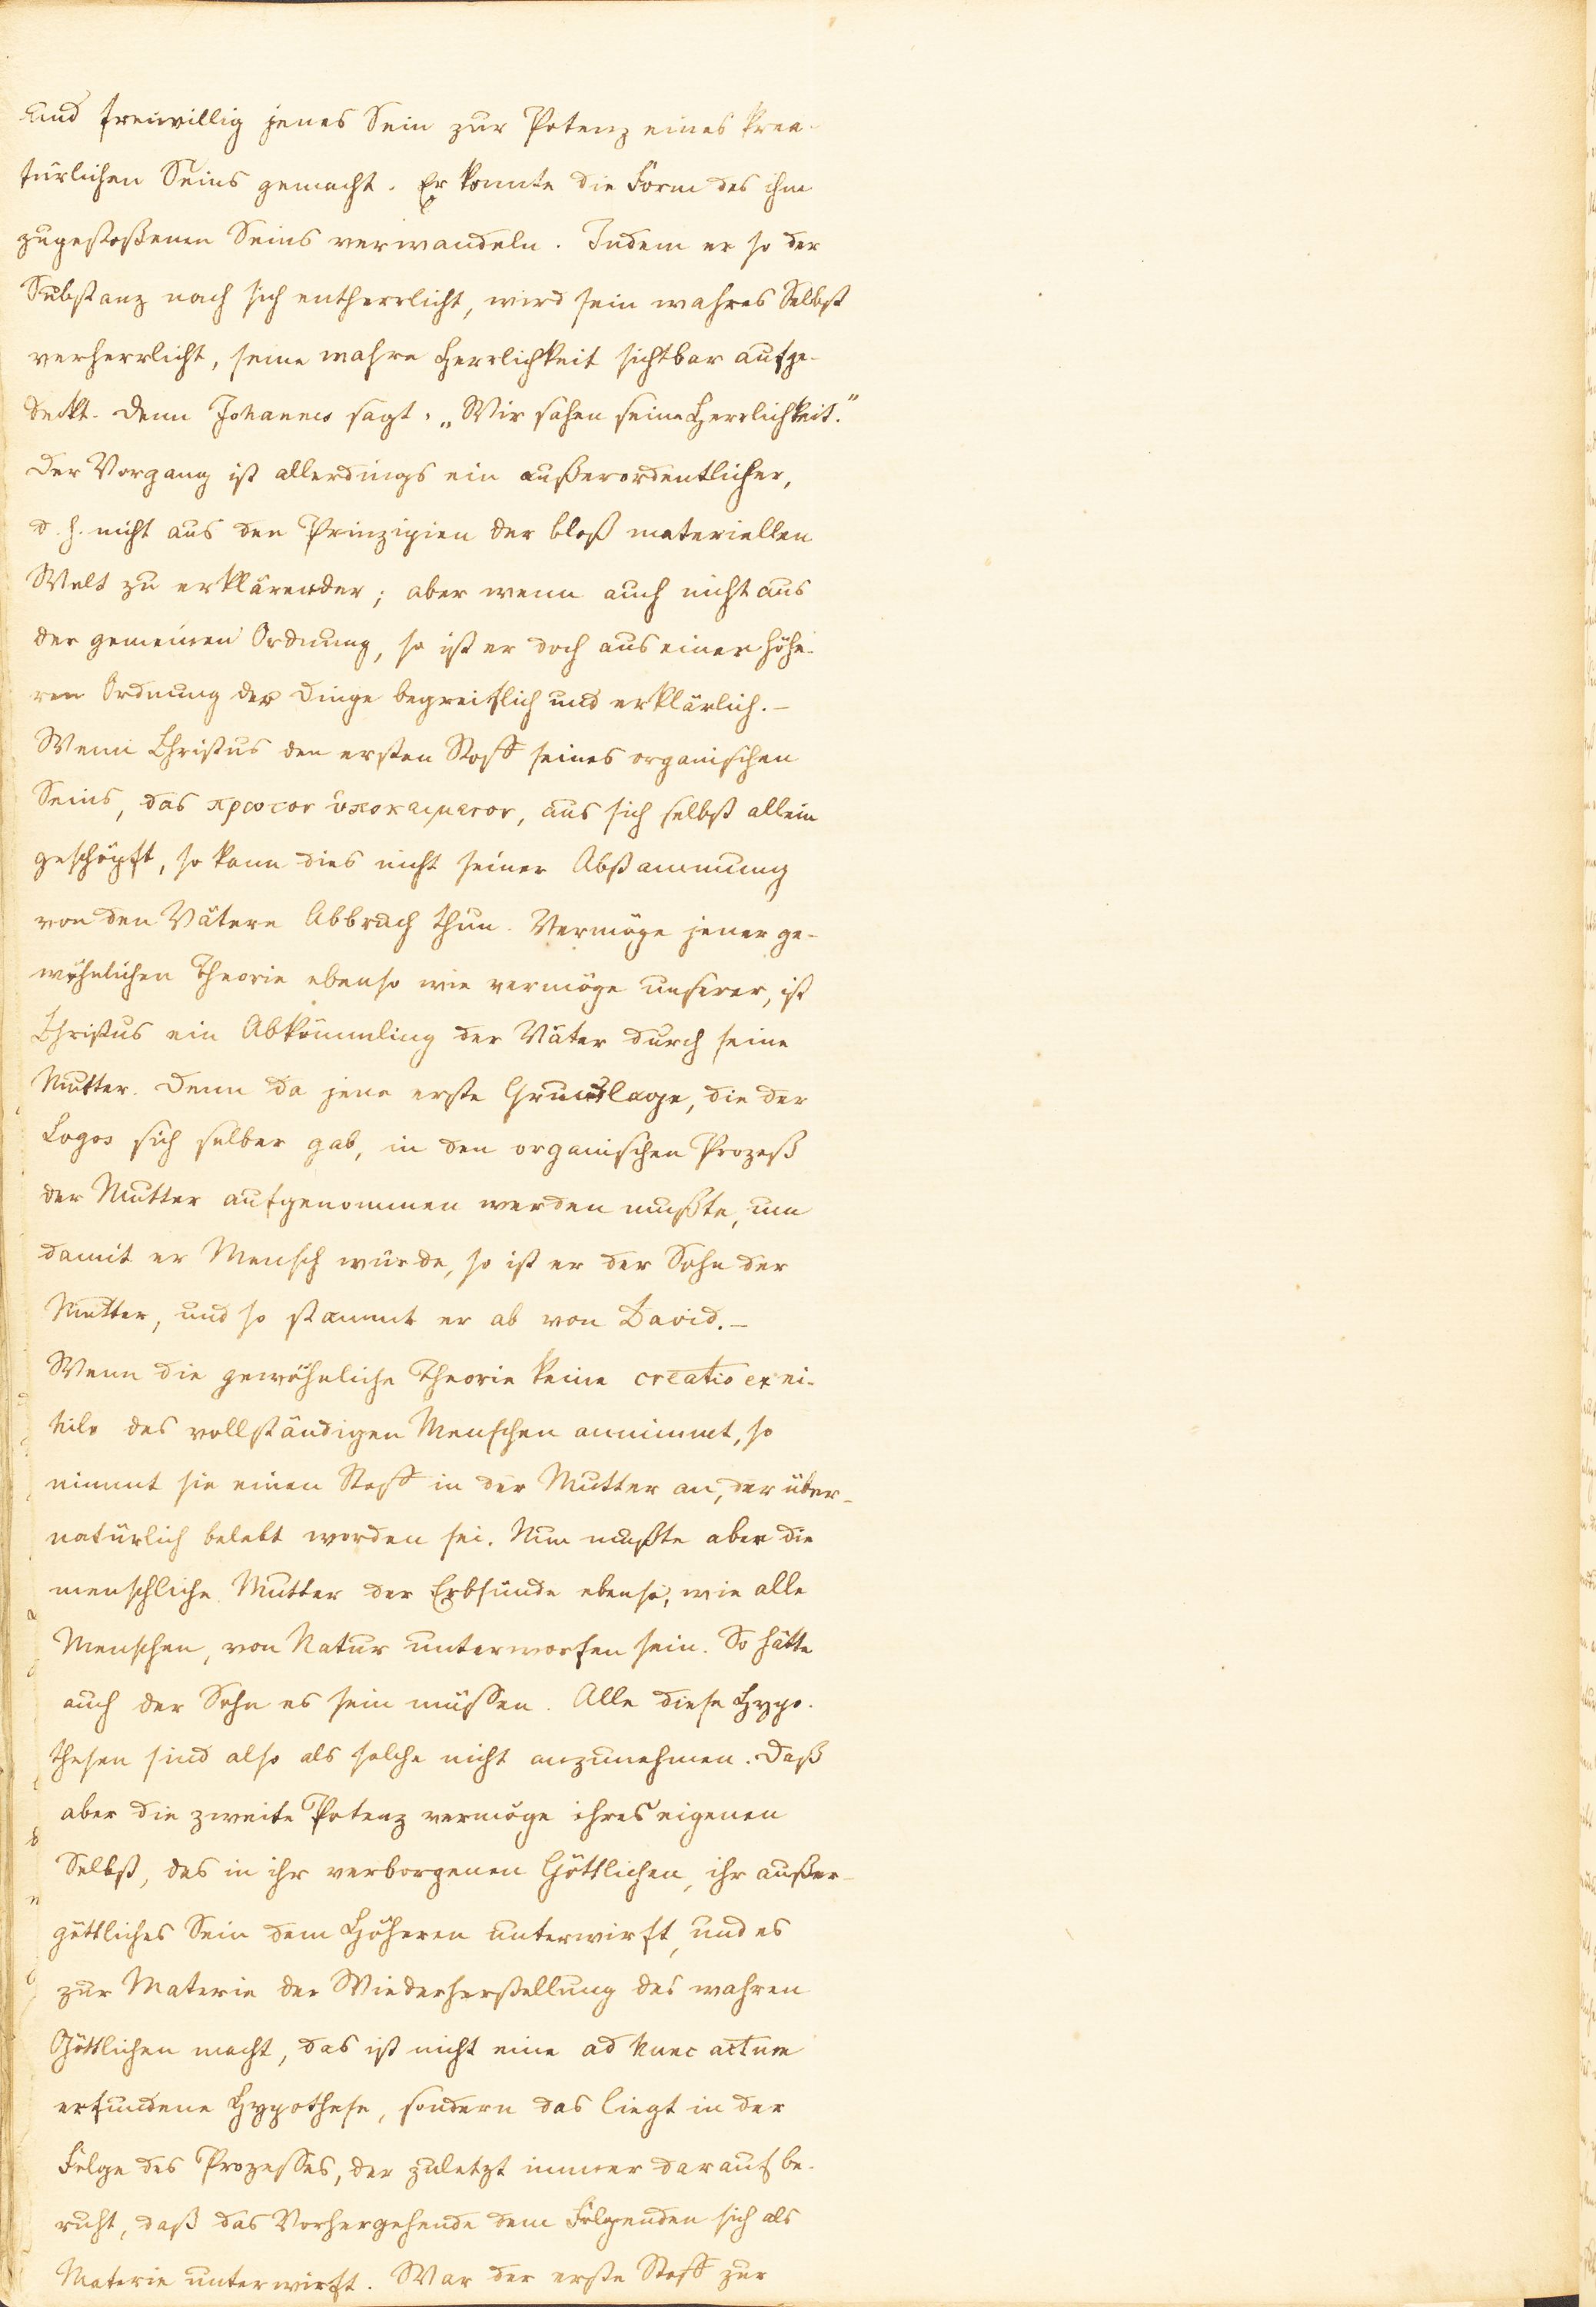 und freiwillig jenes Sein zur Potenz eines krea-
türlichen Seins gemacht. Er konnte die Form des ihm
zugestoßenen Seins verwandeln. Indem er so der
Substanz nach sich entherrlicht, wird sein wahres Selbst
verherrlicht, seine wahre Herrlichkeit sichtbar aufge-
deckt. Denn Johannes sagt: „Wir sahen seine Herrlichkeit."
Der Vorgang ist allerdings ein außerordentlicher,
d. h. nicht aus den Prinzipien der bloß materiellen
Welt zu erklärender; aber wenn auch nicht aus
der gemeinen Ordnung, so ist er doch aus einer höhe-
ren Ordnung der Dinge begreiflich und erklärlich. –
Wenn Christus den ersten Stoff seines organischen
Seins, das πρωτον ὑποκειμενον, aus sich selbst allein
geschöpft, so kann dies nicht seiner Abstammung
von den Vätern Abbruch thun. Vermöge jener ge-
wöhnlichen Theorie ebenso wie vermöge unserer, ist
Christus ein Abkömmling der Väter durch seine
Mutter. Denn da jene erste Grundlage, die der
Logos sich selber gab, in den organischen Prozeß
der Mutter aufgenommen werden mußte, um
damit er Mensch würde, so ist er der Sohn der
Mutter, und so stammt er ab von David. –
Wenn die gewöhnliche Theorie keine creatio ex ni-
hilo des vollständigen Menschen annimmt, so
nimmt sie einen Stoff in der Mutter an, der über-
natürlich belebt worden sei. Nun mußte aber die
menschliche Mutter der Erbsünde ebenso, wie alle
Menschen, von Natur unterworfen sein. So hätte
auch der Sohn es sein müssen. Alle diese Hypo-
thesen sind also als solche nicht anzunehmen. Daß
aber die zweite Potenz vermöge ihres eigenen
Selbst, des in ihr verborgenen Göttlichen, ihr außer-
göttliches Sein dem Höheren unterwirft, und es
zur Materie der Wiederherstellung des wahren
Göttlichen macht, das ist nicht eine ad hunc actum
erfundene Hypothese, sondern das liegt in der
Folge des Prozesses, der zuletzt immer darauf be-
ruht, daß das Vorhergehende dem Folgenden sich als
Materie unterwirft. War der erste Stoff zur